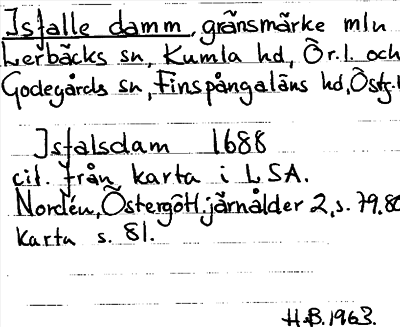 Isfalle damm, gränsmärke mln
Lerbäcks sn, Kumla hd, Ör.l. och
Godegårds sn, Finspångaläns hd, Östg.l
Isfalsdam 1688
cit. från karta i LSA.
Nordén, Östergötl. järnålder 2, s. 79.80
Karta s. 81.
H.B. 1963.